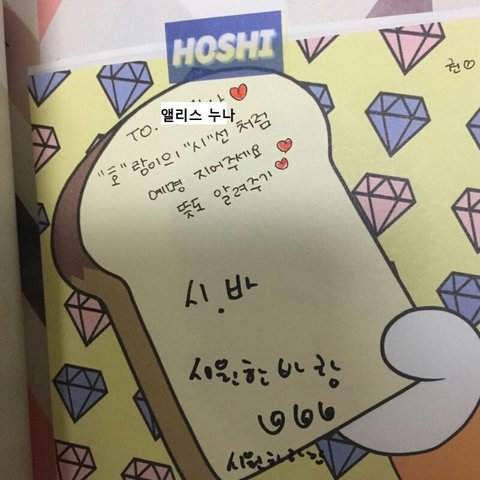 HOSHI
권♡
TO. 앨리스 누나♥
"호"랑이의 "시"선 처럼
예명 지어주세요♥
뜻도 알려주기♥
시.바
시원한 바람